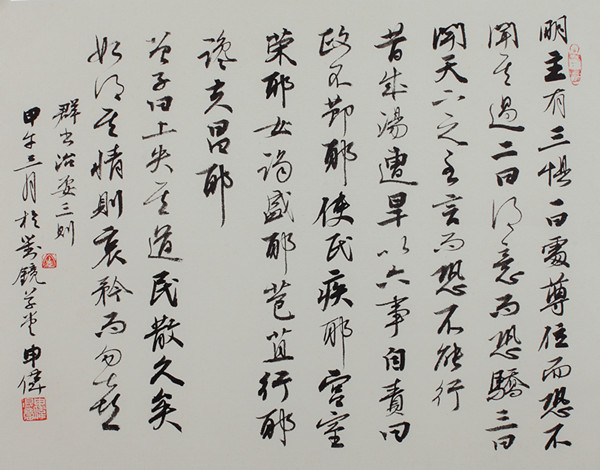 明主有三惧一曰處尊位而恐不
聞其過二曰得意而恐驕三曰
聞天下之至言而恐不能行
昔成湯遭旱以六事自責曰
政不節耶使民疾耶宮室
榮耶女謁盛耶苞苴行耶
讒夫昌耶
曾子曰上失其道民散久矣
如得其情則哀矜而勿喜
群书治要三则
甲午三月於鏡草堂申偉